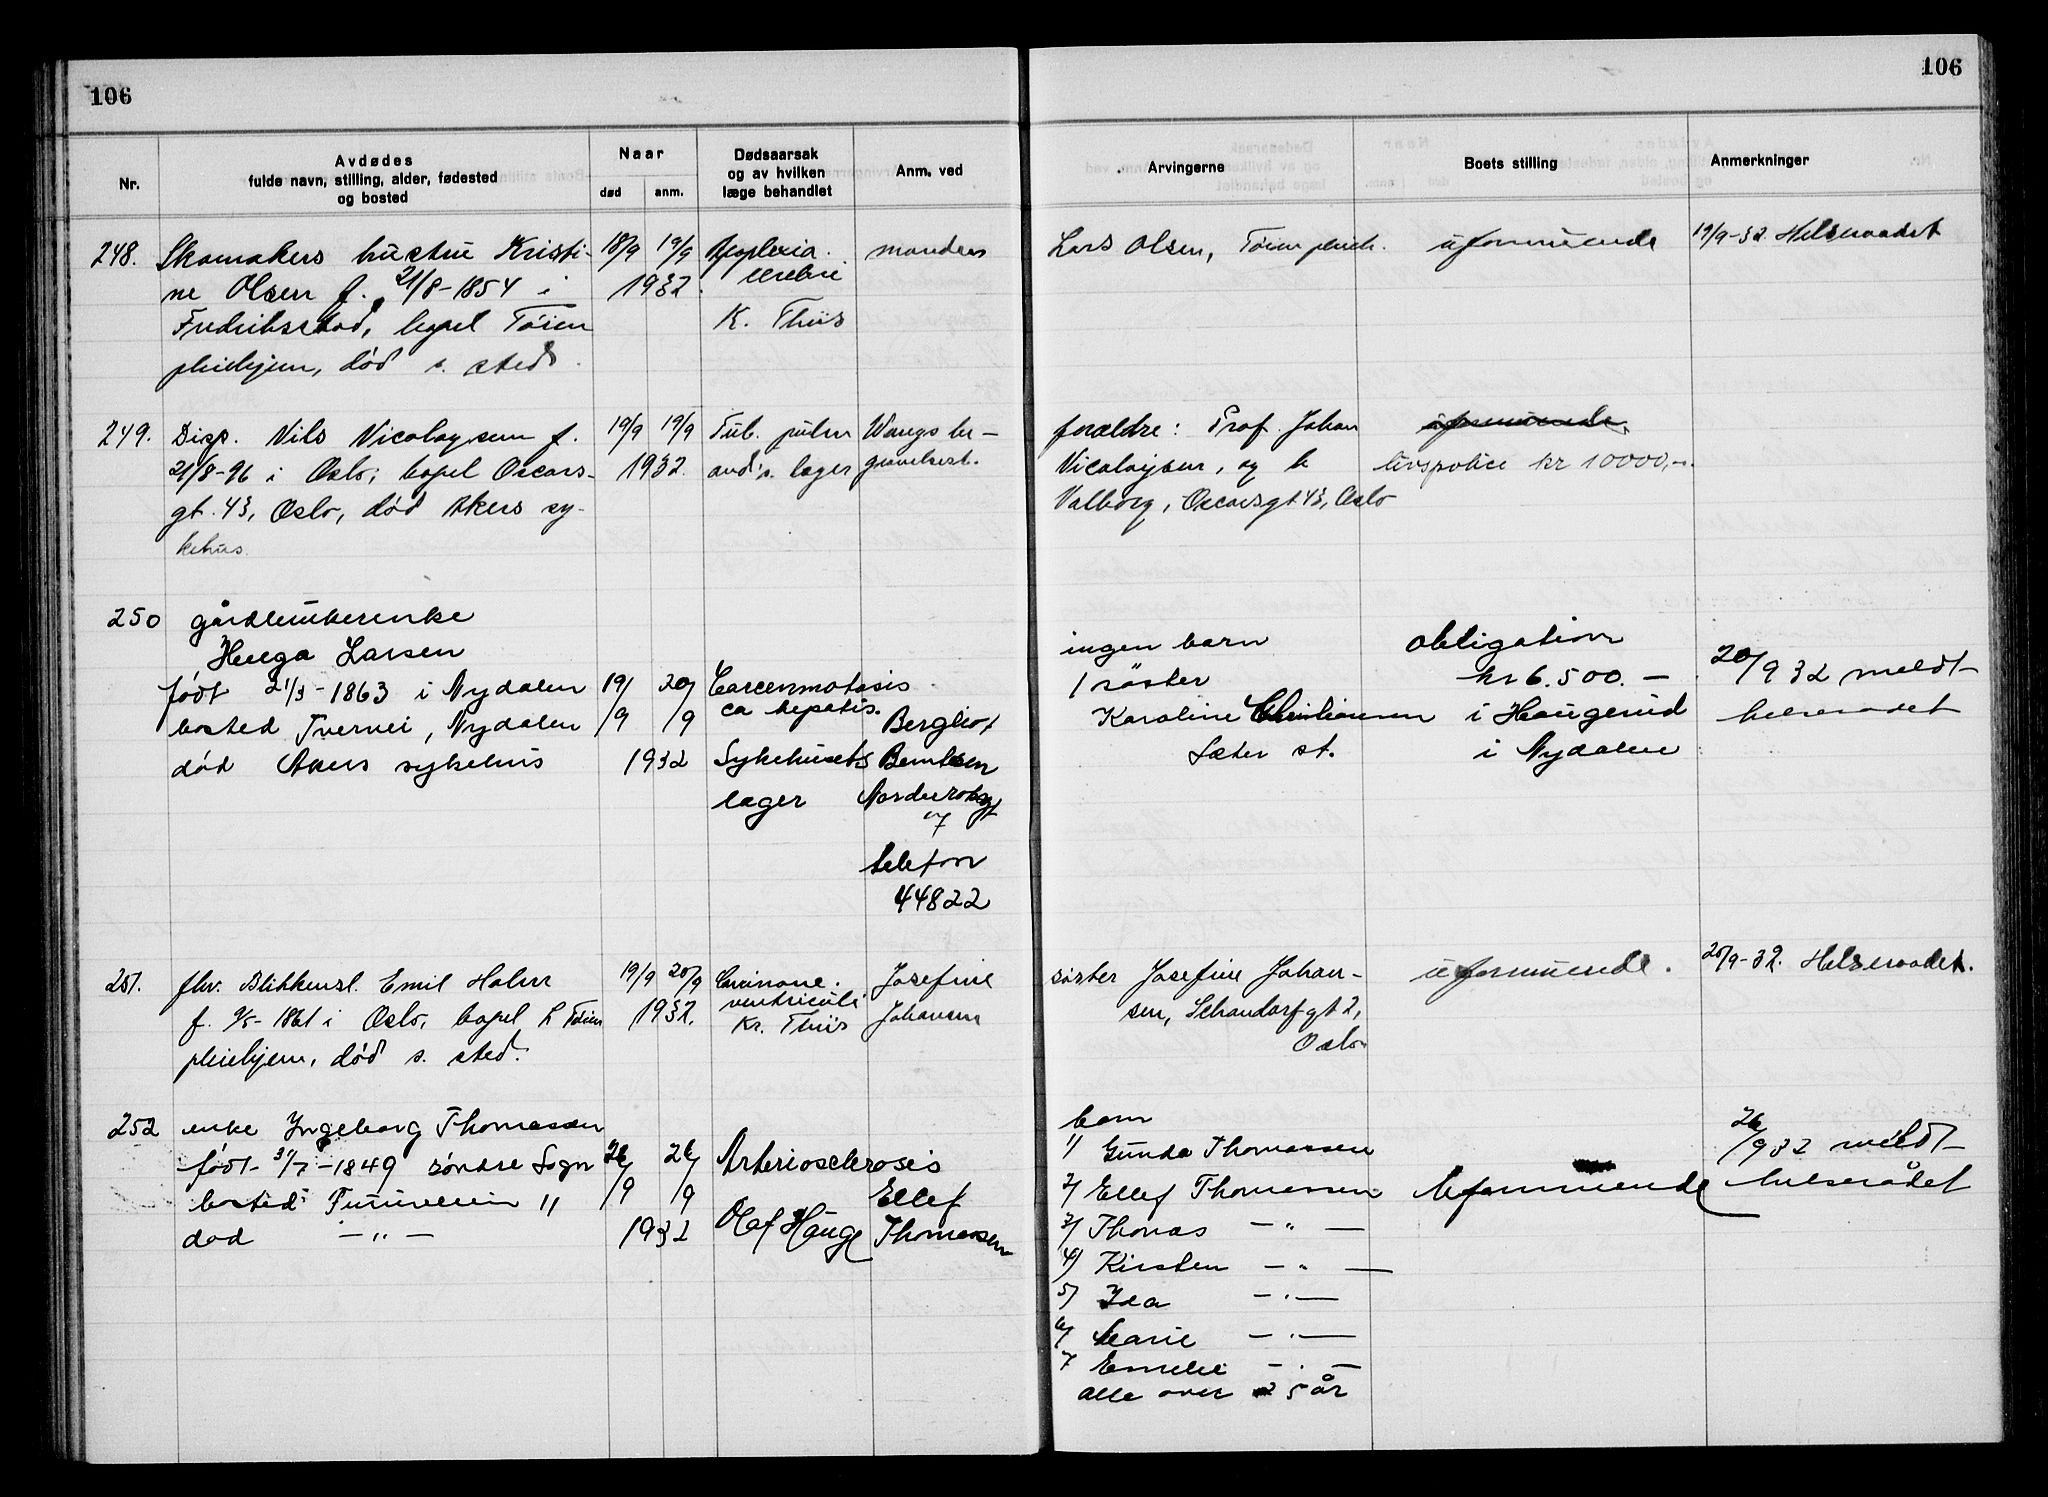 106
106
Nr.
Avdødes
fulde navn, stilling, alder, fødested
og bosted
Naar
død
anm.
Dødsaarsak
og av hvilken
læge behandlet
Anm. ved
Arvingerne
Boets stilling
Anmerkninger
248. Skomakers hustru Kristi-
ne Olsen f. 21/8-1854 i
Fredrikstad, bopel Tøien
pleiehjem, død s. sted.
18/9 19/9
1932.
Apoplexia
cerebri
K. Thiis
manden
Lars Olsen, Tøien pleieh.
uformuende
19/9-32. Helseraadet
249. Disp. Nils Nicolaysen f.
21/8-96 i Oslo, bopel Oscars-
gt. 43, Oslo, død Akers sy-
kehus.
19/9 19/9
1932.
Tub. pulm
læger
Wangs be-
gravelsesb.
forældre: Prof. Johan
Nicolaysen, og h
Valborg, Oscarsgt 43, Oslo
uformuende
livspolice kr 10000,-
250 gårdbrukerenke
Helga Larsen
født 21/3-1863 i Nydalen
bosted Tvervei, Nydalen
død Akers sykehus
19/9 20/9
1932
Carcenmotosis
ca hepatis.
Sykehusets
læger
Bergliot
Berntsen
7
telefon
44822
ingen barn
1 søster
Karoline Christiansen
Sæter st.
obligation
kr 6.500.-
i Haugerud
i Nydalen
20/9 32 meldt
helseraadet
251. fhv. Blikkensl. Emil Holm
f. 9/5-1861 i Oslo, bopel Tøien
pleiehjem, død s. sted.
19/9 20/9
1932.
ventriculi
Kr. Thiis
Josefine
Johansen
søster Josefine Johan-
sen, Schandorfgt 2,
Oslo
uformuende.
20/9-32. Helseraadet.
252 enke Ingeborg Thomassen
født 31/7-1849 søndre Sogn
bosted Furuveien 11
død -"-
26/9 26/9
1932
Arteriosclerosis
Olaf Hauge
Ellef
Thomassen
barn
1/ Gunda Thomassen
2/ Ellef Thomassen
3/ Thomas -"-
4/ Kirsten -"-
5/ Ida -"-
6/ Marie -"-
7 Emelie -"-
alle over 25 år
Uformuende
26/9 32 meldt
helserådet